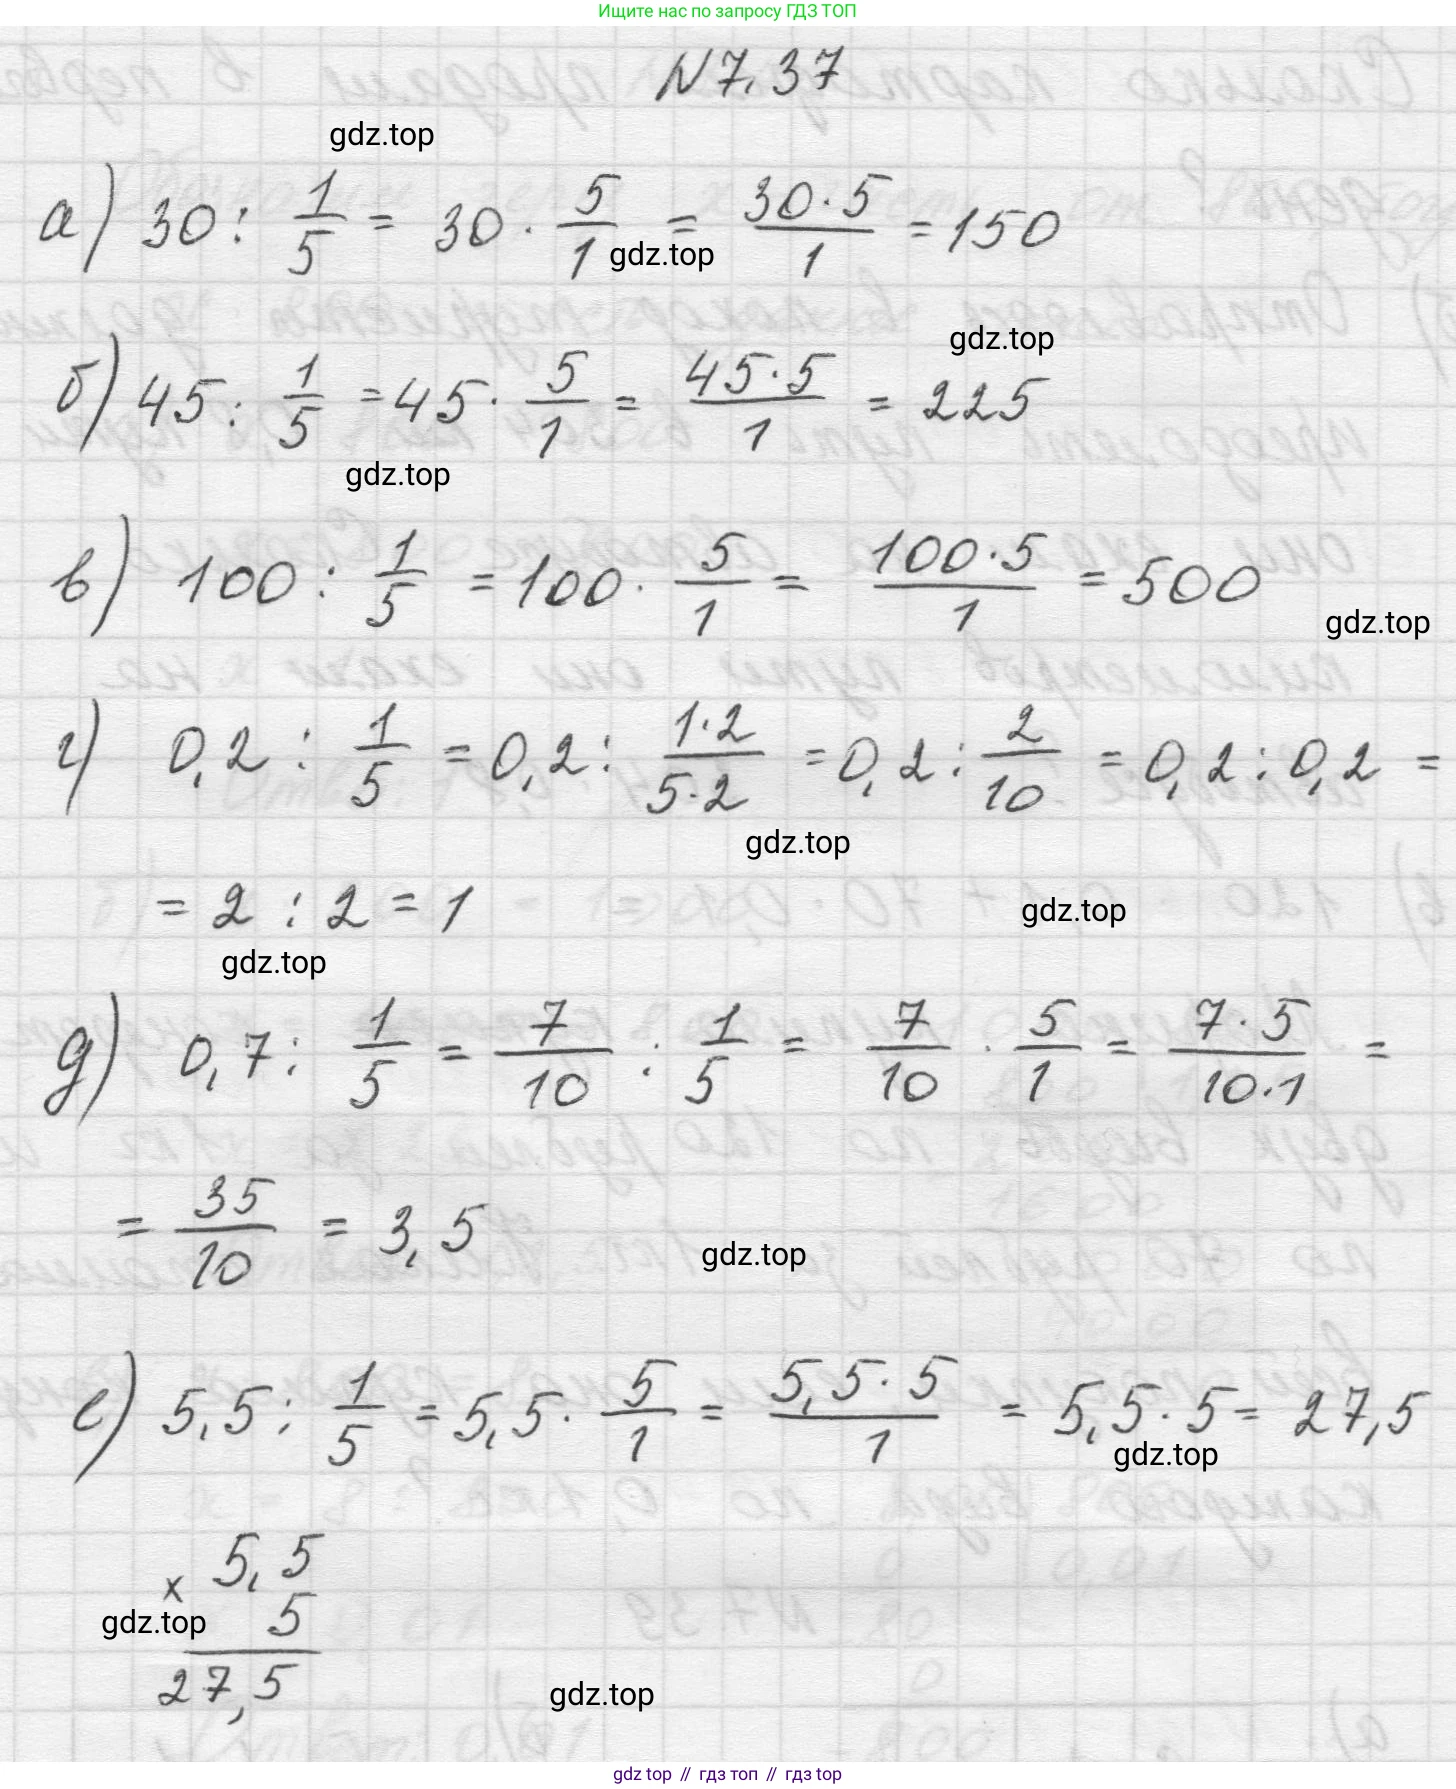 Ищите нас по запросу ГДЗ ТОП
N 7.37
gdz.top
а) 30 : 1/5 = 30 · 5/1 = (30·5)/1 = 150
gdz.top
gdz.top
б) 45 : 1/5 = 45 · 5/1 = (45·5)/1 = 225
gdz.top
в) 100 : 1/5 = 100 · 5/1 = (100·5)/1 = 500
gdz.top
г) 0,2 : 1/5 = 0,2 : (1·2)/(5·2) = 0,2 : 2/10 = 0,2 : 0,2 =
gdz.top
= 2 : 2 = 1
gdz.top
gdz.top
д) 0,7 : 1/5 = 7/10 : 1/5 = 7/10 · 5/1 = (7·5)/(10·1) =
= 35/10 = 3,5
gdz.top
е) 5,5 : 1/5 = 5,5 · 5/1 = (5,5·5)/1 = 5,5 · 5 = 27,5
gdz.top
x 5,5
gdz.top 5
27,5
gdz.top
gdz top // гдз топ // гдз top